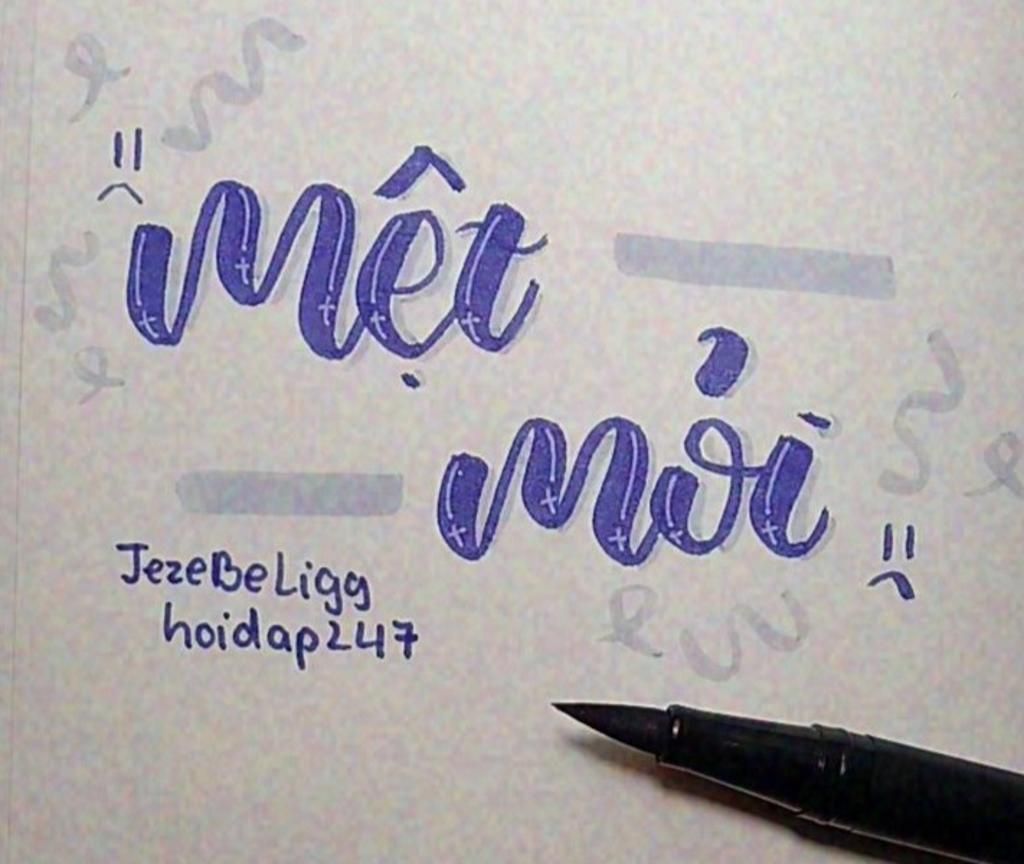 mệt
mỏi
JezeBeLigg
hoidap247